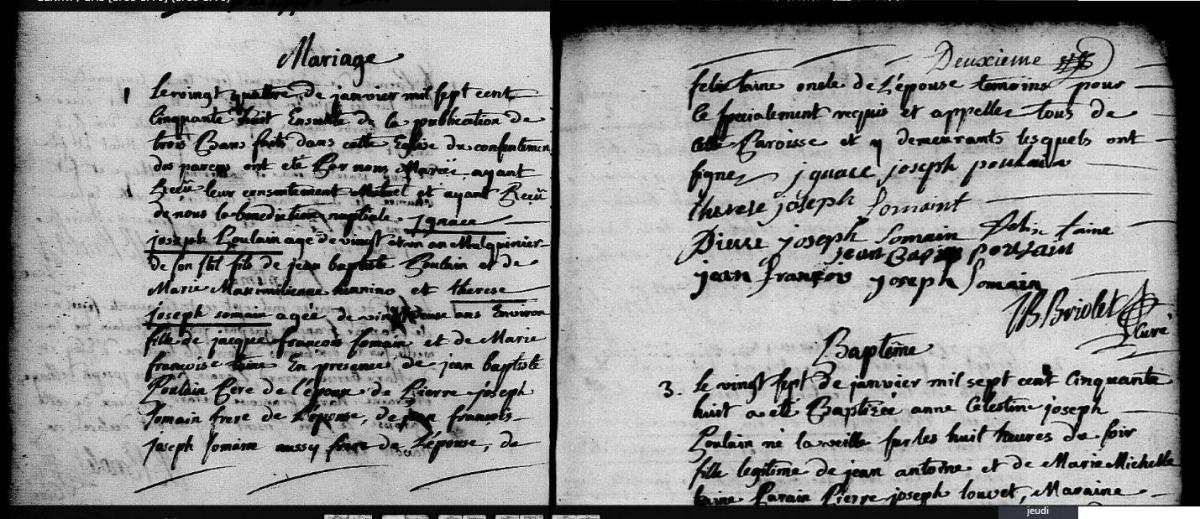 Mariage
1 Le vingt quattre de janvier mil sept cent
cinquante huit Ensuitte de la publication de
trois Bans faits dans cette Eglise du consentemen
des parens ont eté Par nous Mariéz ayant
Receü leur consentement Mutuel et ayant Receü
de nous la benediction nuptiale Ignace
joseph Poulain agé de vingt et un an Mulquinier
de son stil fils de jean baptiste Poulain et de
Marie Maximilienne et therese
joseph somain agée de vingt deuse ans Environ
fille de jacque françois somain et de Marie
françoise taine En presence de jean baptiste
Poulain Pere de l'époux de Pierre joseph
somain frere de l'épouse, de jean françois
joseph somain aussy frere de l'épouse, de
Deuxieme
felix taine oncle de L'épouse temoins pour
ce specialement requis et appellez tous de
cette Paroisse et y demeurants lesquels ont
signez ignace joseph poulain
therese joseph Somaint
Pierre joseph Somain Felix taine
jean Bap poulain
jean françois joseph Somain
JB Briolet
Curé
Baptême
3. Le vingt sept de janvier mil sept cent Cinquante
huit a eté Baptizée anne Celestine joseph
Poulain né la veille sur les huit heures de soir
fille legitime de jean antoine et de Marie Michelle
taine Parain Pierre joseph louvet, Maraine
jeudi